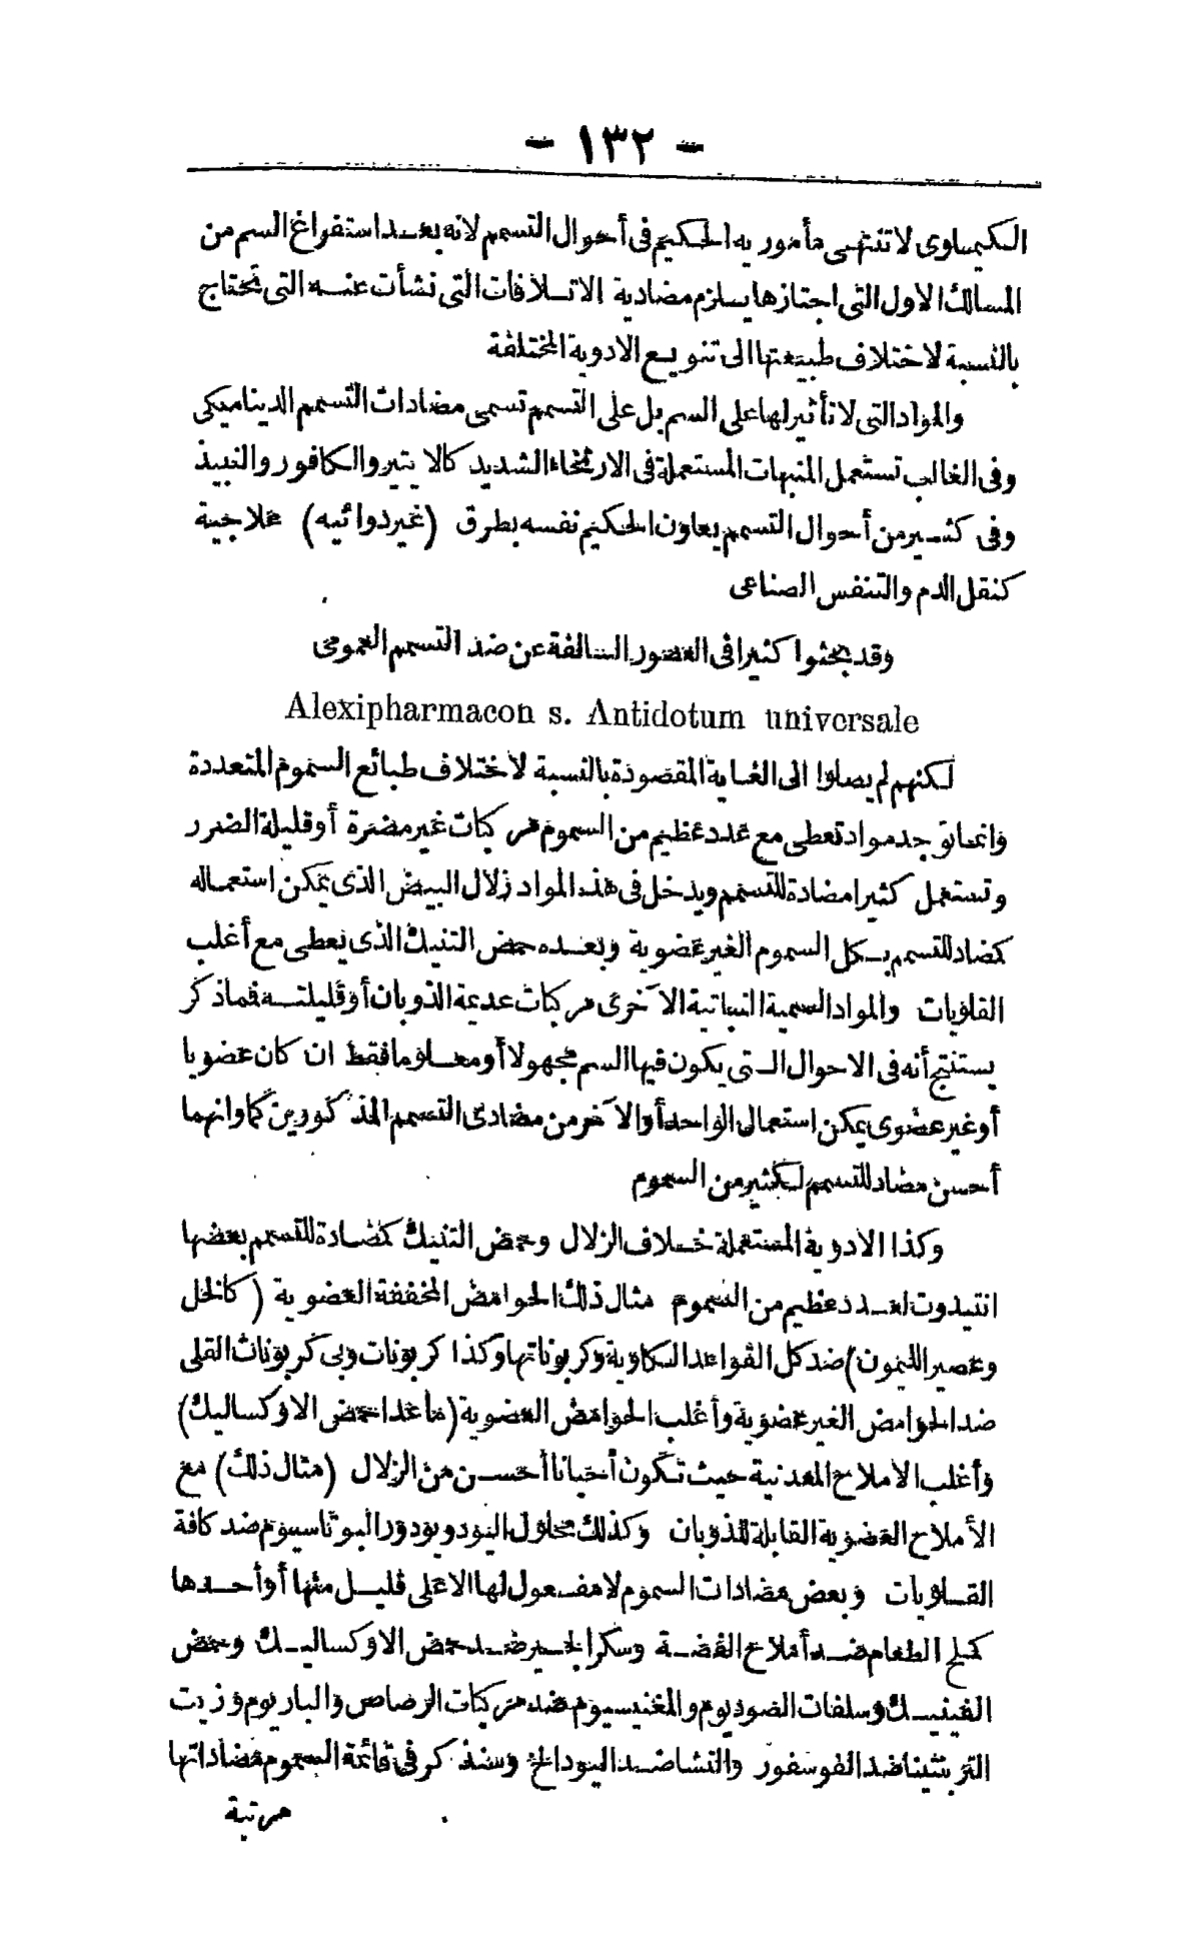 - ١٣٢ -
الكيماوى لا تنتهى مأموريه الحكيم فى أحوال التسمم لانه بعد استفراغ السم من
المسالك الاول التى اجتازها يلزم مضادية الاتلافات التى نشأت عنه التى تحتاج
بالنسبة لاختلاف طبيعتها الى تنويع الادوية المختلفة
والمواد التى لا تأثير لها على السم بل على التسمم تسمى مضادات التسمم الديناميكى
وفى الغالب تستعمل المنبهات المستعملة فى الارتخاء الشديد كالايتير والكافور والنبيذ
وفى كثير من أحوال التسمم يعاون الحكيم نفسه بطرق (غير دوائيه) علاجية
كنقل الدم والتنفس الصناعى
وقد بحثوا كثيرا فى العصور السالفة عن ضد التسمم العمومى
Alexipharmacon s. Antidotum universale
لكنهم لم يصلوا الى الغاية المقصودة بالنسبة لاختلاف طبائع السموم المتعددة
وانما توجد مواد تعطى مع عدد عظيم من السموم مركبات غير مضرة أو قليلة الضرر
وتستعمل كثيرا مضادة للتسمم ويدخل فى هذه المواد زلال البيض الذى يمكن استعماله
كضاد للتسمم بكل السموم الغير عضوية وبعده حمض التنيك الذى يعطى مع أغلب
القلويات والمواد السمية النباتية الآخرى مركبات عديمة الذوبان أو قليلته فماذكر
يستنتج أنه فى الاحوال التى يكون فيها السم مجهولا أو معلوما فقط ان كان عضويا
أو غير عضوى يمكن استعمال الواحد أو الآخر من مضادى التسمم المذكورين كما وانهما
أحسن مضاد للتسمم لكثير من السموم
وكذا الادوية المستعملة خلاف الزلال وحمض التنيك كمضادة للتسمم بعضها
انتيدوت لعدد عظيم من السموم مثال ذلك الحوامض المخففة العضوية (كالخل
وعصير الليمون) ضد كل القواعد الكاوية وكربوناتها وكذا كربونات وبى كربونات القلى
ضد الحوامض الغير عضوية وأغلب الحوامض العضوية (ماعدا حمض الاوكساليك)
وأغلب الاملاح المعدنية حيث تكون أحيانا أحسن من الزلال (مثال ذلك) مع
الأملاح العضوية القابلة للذوبان وكذلك محلول اليود ويودور البوتاسيوم ضد كافة
القلويات وبعض مضادات السموم لا مفعول لها الا على قليل منها أو أحدها
كملح الطعام ضد أملاح الفضة وسكر الجير ضد حمض الاوكساليك وحمض
الفينيك وسلفات الصوديوم والمغنيسيوم ضد مركبات الرصاص والباريوم وزيت
التربنتينا ضد الفوسفور والنشا ضد اليود الخ وسنذكر فى قائمة السموم مضاداتها
مرتبة